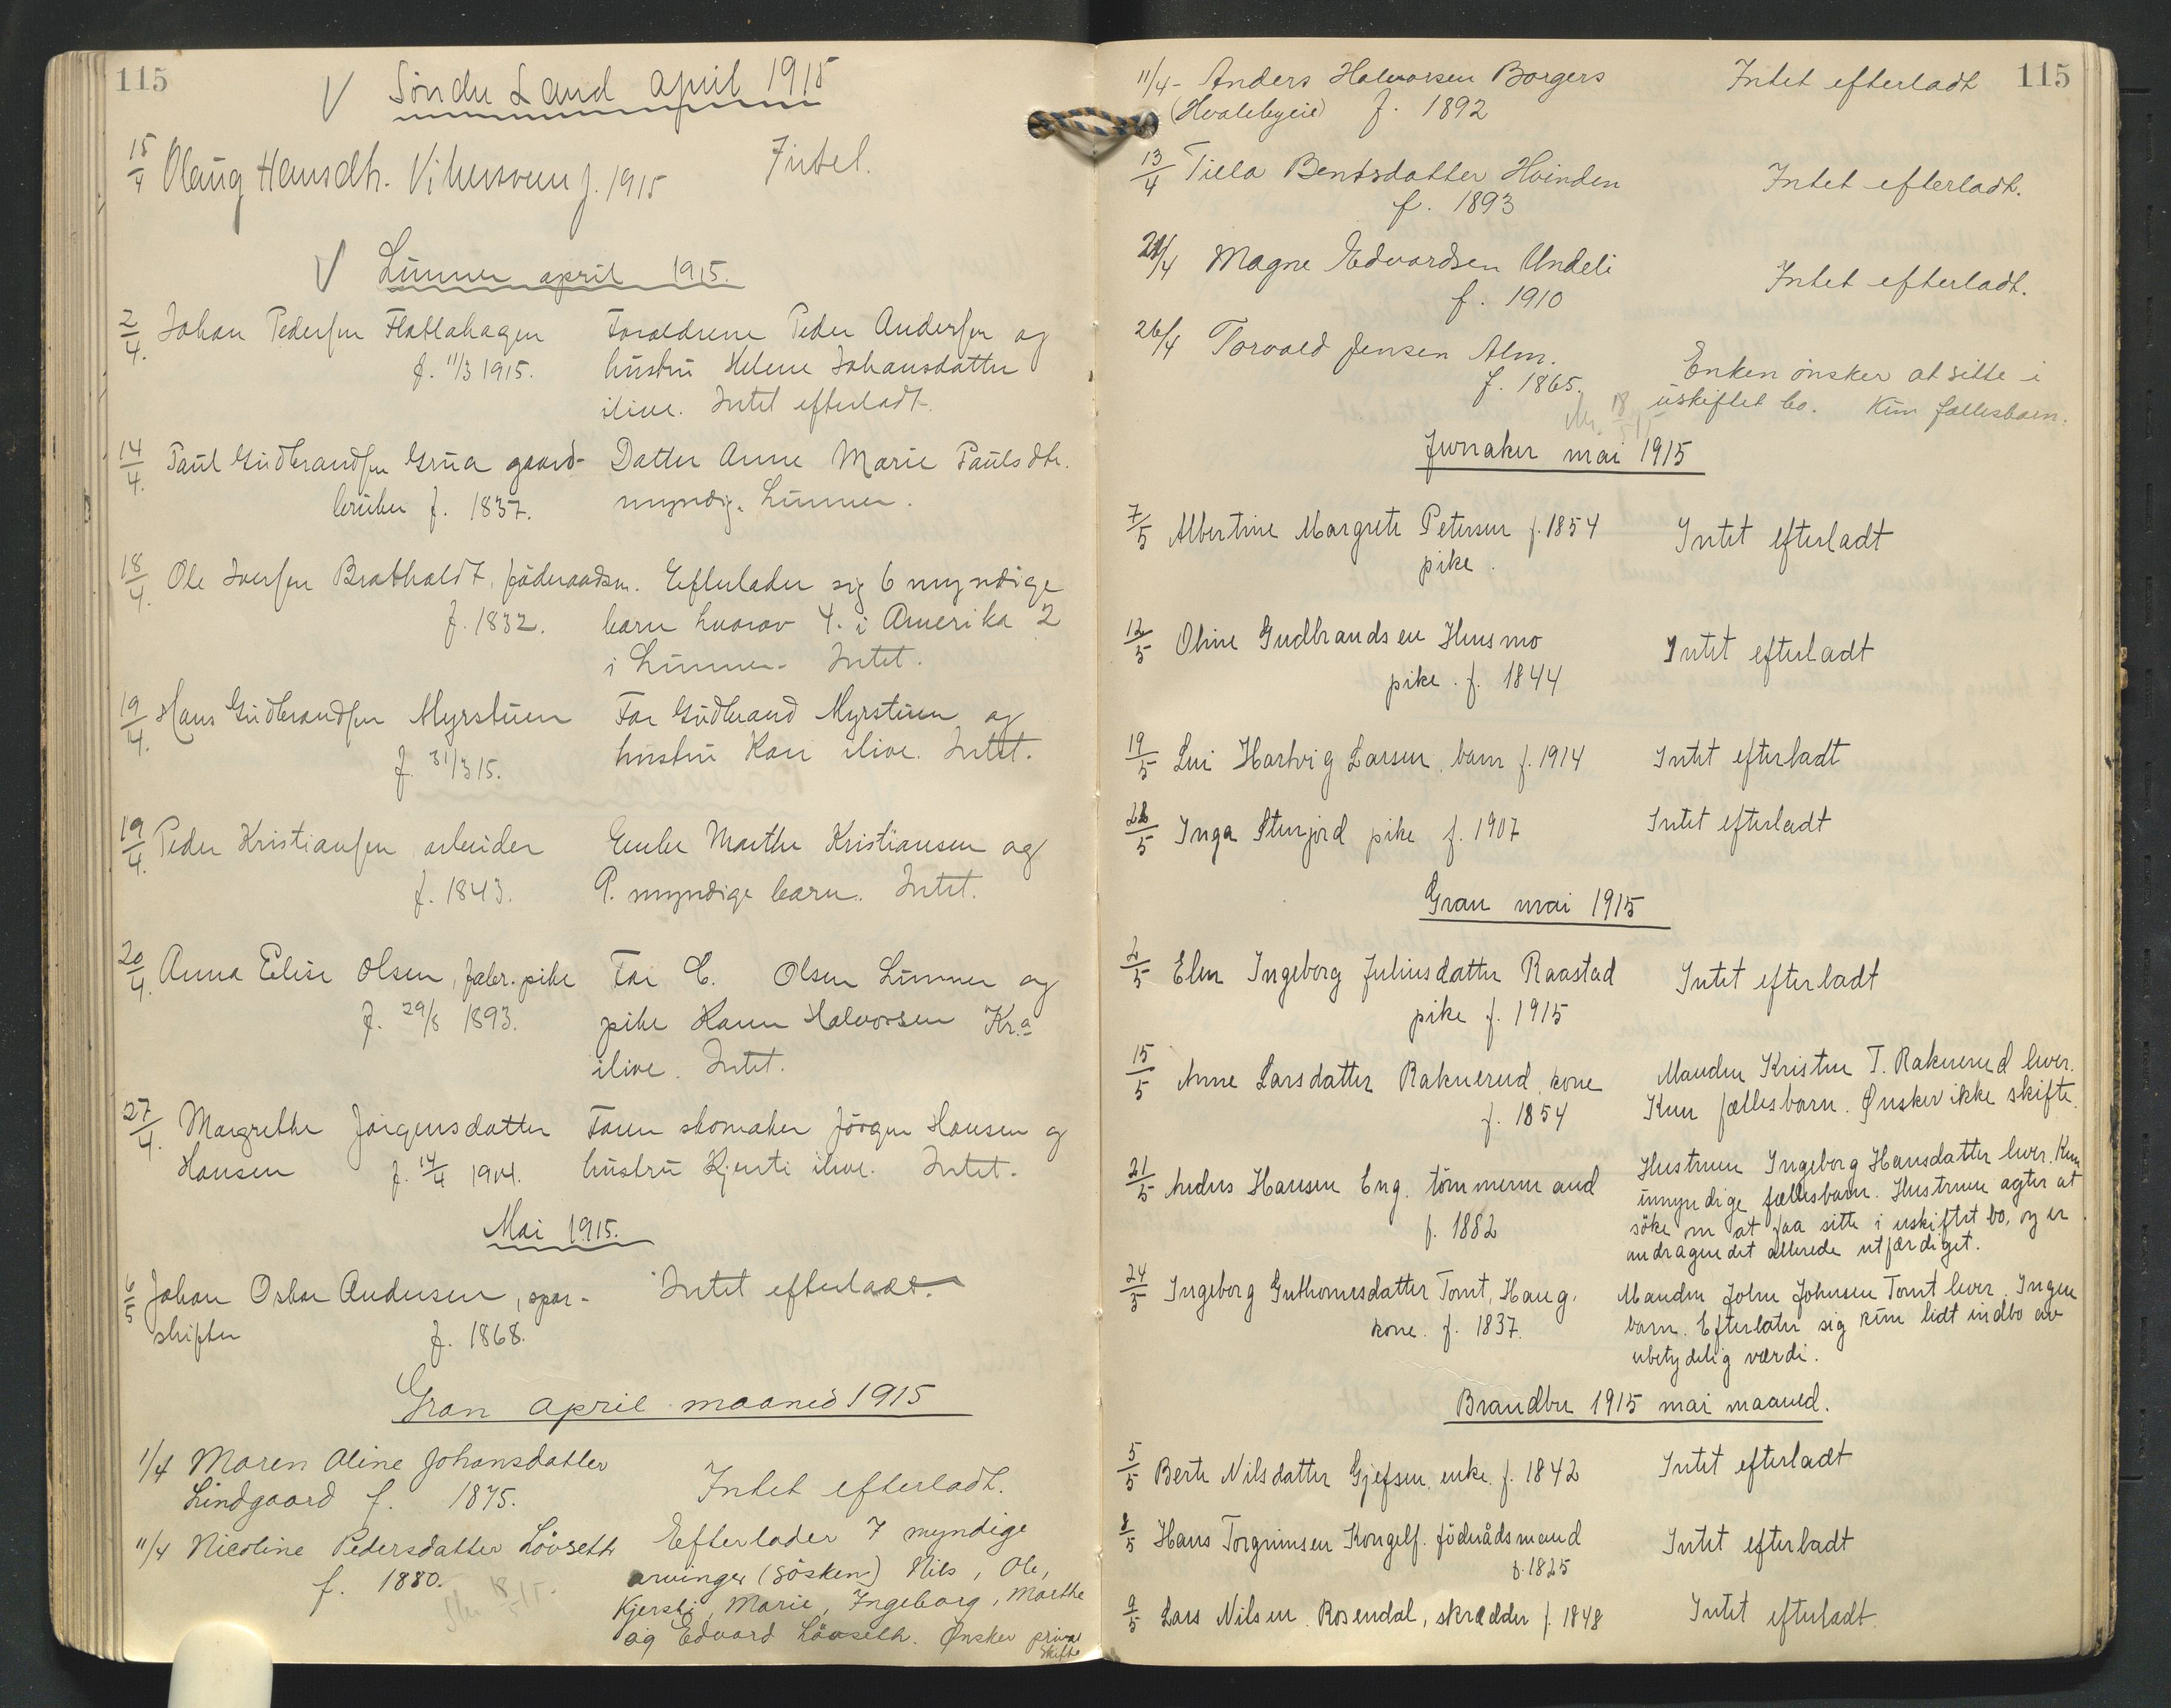 115
Søndre Land april 1915
15/4 Olaug Hansdtr. f. 1915 Intet.
Lunner april 1915.
2/4. Johan Pedersen Flatlahagen Forældrene Peder Andersen og
f. 11/3 1915. hustru Helene Johansdatter
ilive. Intet efterladt.
14/4. Paul Gudbrandsen Grua gaard- Datter Anne Marie Paulsdtr.
bruker f. 1837. myndig. Lunner.
18/4. Ole Iversen Bratvaldt, föderaadsm. Efterlader sig 6 myndige
f. 1832. barn hvorav 4. i Amerika 2
i Lunner. Intet.
19/4. Hans Gudbrandsen Myrstuen Far Gudbrand Myrstuen og
f. 31/3 15. hustru Kari ilive. Intet.
19/4. Peder Kristiansen arbeider Enke Marthe Kristiansen og
f. 1843. 9. myndige barn. Intet.
20/4. Anna Elise Olsen, fabr. pike Far E. Olsen Lunner og
f. 29/8 1893. pike Karen Halvorsen Kr.a
ilive. Intet.
27/4. Margrethe Jörgensdatter Faren skomaker Jörgen Hansen og
Hansen f. 14/4 1904. hustru Kjersti ilive. Intet.
Mai 1915.
6/5 Johan Oskar Andersen, spor- Intet efterladt.
skifter f. 1868.
Gran april maaned 1915
1/4 Maren Oline Johansdatter
Lindgaard f. 1875. Intet efterladt.
11/4 Nicoline Pedersdatter Lövseth Efterlader 7 myndige
f. 1880. arvinger (søsken) Nils, Ole,
18/5 15. Kjersti, Marie, Ingeborg, Marthe
og Edvard Lövseth. Ønsker privat
skifte
11/4 - Anders Halvorsen Borgers Intet efterladt 115
(Hvalebyeie) f. 1892
13/4 Tiela Bentsdatter Hvinden Intet efterladt.
f. 1893
21/4 Magne Edvardsen Undeli Intet efterladt.
f. 1910
26/4 Torvald Jensen Alm. Enken ønsker at sitte i
f. 1865. uskiftet bo. Kun fællesbarn.
18/5 15
Jevnaker mai 1915
7/5 Albertine Margrete Petersen f. 1854 Intet efterladt
pike.
12/5 Oline Gudbrandsen Husmo Intet efterladt
pike. f. 1844
19/5 Lui Hartvig Larsen, barn f. 1914 Intet efterladt
28/5 Inga Stenjord pike f. 1907 Intet efterladt
Gran mai 1915
2/5 Elen Ingeborg Juliusdatter Raastad Intet efterladt
pike f. 1915
15/5 Anne Larsdatter Raknerud kone Manden Kristen T. Raknerud lever.
f. 1854 Kun fællesbarn. Ønsker ikke skifte.
21/5 Anders Hansen Eng. tømmermand Hustruen Ingeborg Hansdatter lever. Kun
f. 1882 umyndige fællesbarn. Hustruen agter at
söke om at faa sitte i uskiftet bo, og er
andragendet allerede utfærdiget.
24/5 Ingeborg Guthormsdatter Tomt, Haug. Manden John Johnsen Tomt lever. Ingen
kone. f. 1837. barn. Efterlater sig kun lidt indbo av
ubetydelig værdi.
Brandbu 1915 mai maaned.
5/5 Berte Nilsdatter Gjefsen, enke f. 1842 Intet efterladt
8/5 Hans Torgrimsen Kongelf. föderådsmand Intet efterladt
f. 1825
9/5 Lars Nilsen Rosendal, skrædder f. 1848 Intet efterladt.